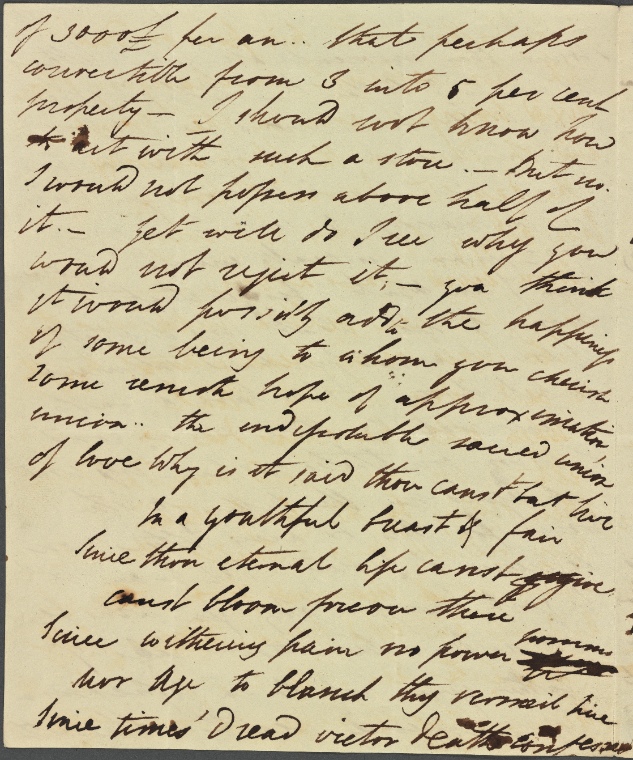 of 3000£ per an.. that perhaps
convertible from 3 into 5 per cent
property — I should not know how
to act with such a store. — But no.
I would not possess above half of
it. — Yet well do I see why you
would not reject it, — you think
it would possibly add to the happiness
of some being to whom you cherish
some remote hope of approximation
union.. the indissoluble sacred union
of love Why is it said thou canst but live
In a youthful breast & fair
Since thou eternal life canst give
canst bloom forever there
Since withering pain no power
nor Age to blanch thy vermeil hue
Since times' dread victor death confess